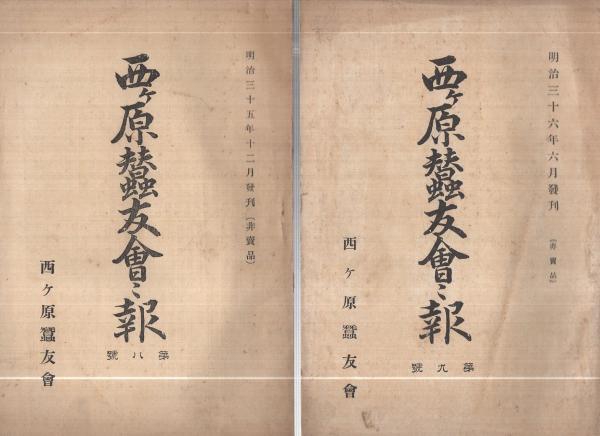 明治三十五年十二月發刊(非賣品)
西ヶ原蠶友會々報
第八號
西ヶ原蠶友會
明治三十六年六月發刊(非賣品)
西ヶ原蠶友會々報
第九號
西ヶ原蠶友會